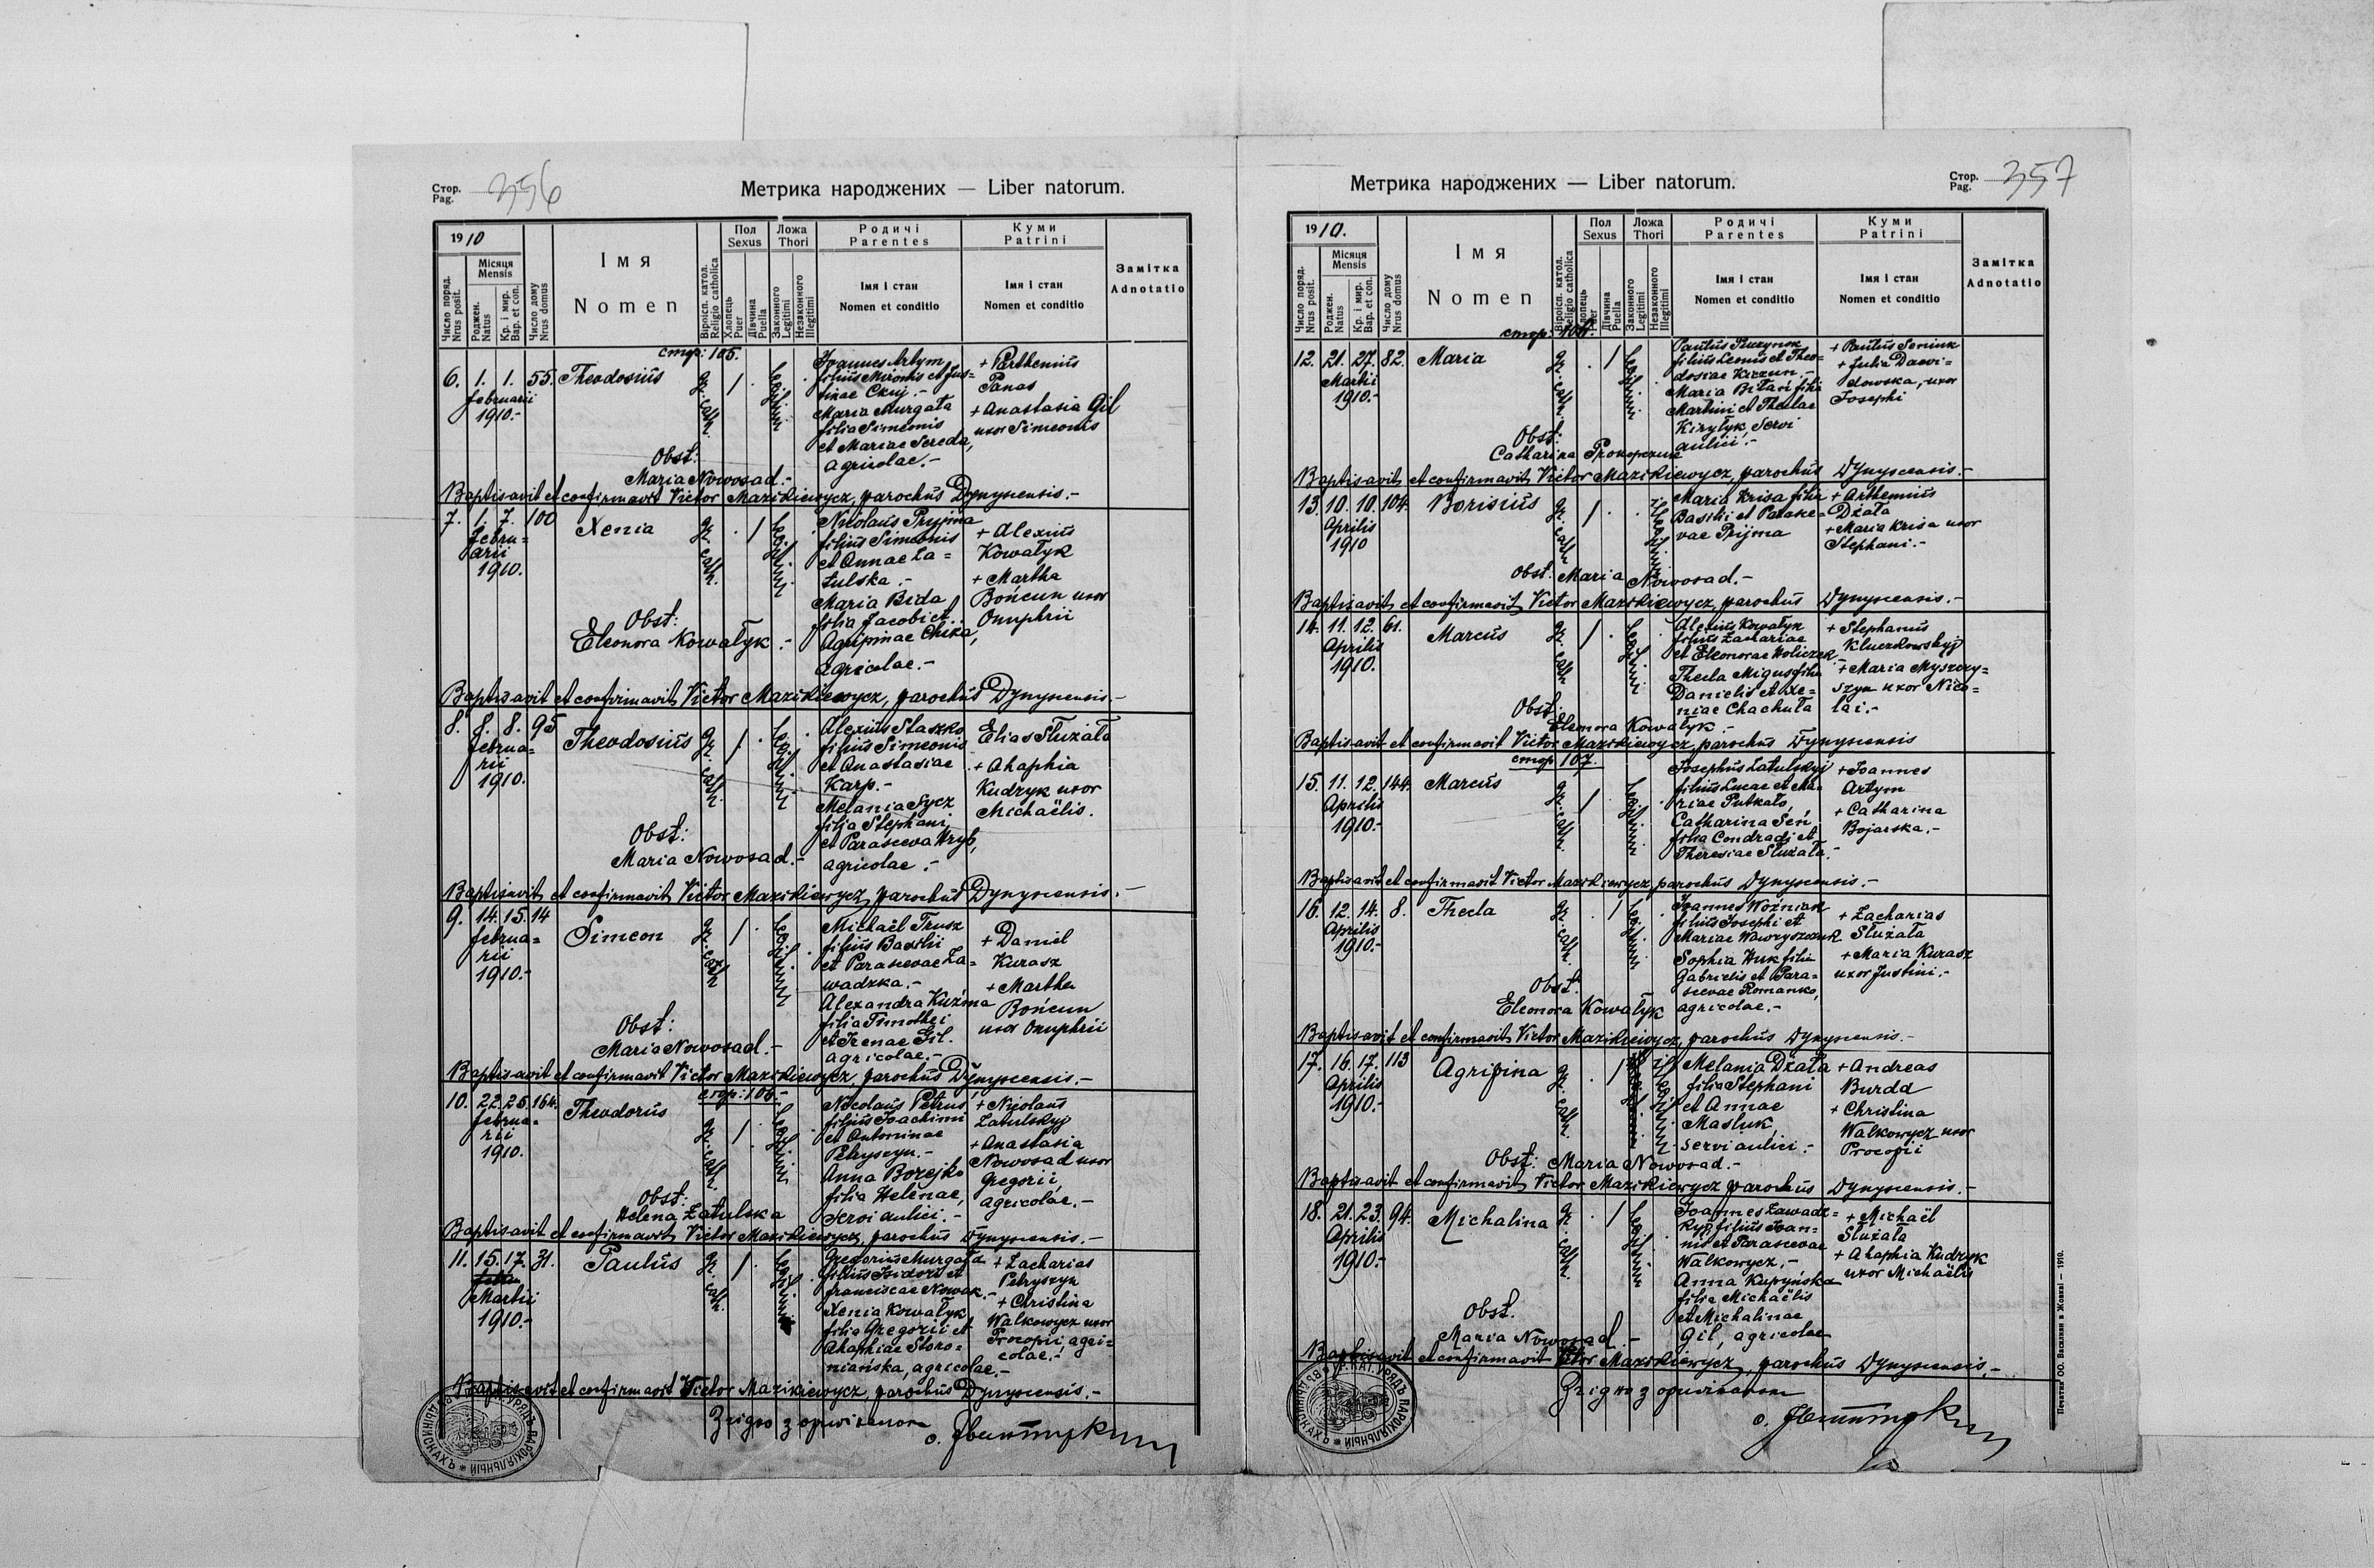 Стор. Pag. 356
Метрика народжених — Liber natorum.
1910
Число поряд. Nrus posit.
Місяця Mensis
Роджен. Natus
Кр. і мир. Bap. et con.
Число дому Nrus domus
Імя Nomen
Віроісп. катол. Religio catholica
Пол Sexus
Хлопець Puer
Дївчина Puella
Ложа Thori
Законного Legitimi
Незаконного Illegitimi
Родичі Parentes
Імя і стан Nomen et conditio
Куми Patrini
Імя і стан Nomen et conditio
Замітка Adnotatio
стор: 105.
6. 1. 1. 55. Theodosius
februarii
1910.-
gr. cath.
legitimi
Joannes Artym
filius Mironis et Jus=
tinae Ckuj.-
Maria Murgała
filia Simeonis
et Mariae Sereda,
agricolae.-
+ Parthemius
Panas
+ Anastasia Gil
uxor Simeonis
Obst:
Maria Nowosad.-
Baptisavit et confirmavit Victor Mazikiewycz, parochus Dynyscensis.-
7. 1. 7. 100 Xenia
febru=
arii
1910.
gr. cath.
legitimi
Nicolaus Pryjma
filius Simeonis
et Annae Za=
tulska.-
Maria Bida
filia Jacobi et
Agripinae Chiza,
agricolae.-
+ Alexius
Kowałyk
+ Martha
Bońcun uxor
Onuphrii
Obst:
Eleonora Kowałyk.-
Baptisavit et confirmavit Victor Mazikiewycz, parochus Dynyscensis.-
8. 8. 8. 95 Theodosius
februa=
rii
1910.
gr. cath.
legitimi
Alexius Staszko
filius Simeonis
et Anastasiae
Karp.-
Melania Sycz
filia Stephani
et Parasceva Hryb,
agricolae.-
Elias Służała
+ Ahaphia
Kudryk uxor
Michaëlis.
Obst:
Maria Nowosad.-
Baptisavit et confirmavit Victor Mazikiewycz, parochus Dynyscensis.-
9. 14. 15. 14 Simeon
februa=
rii
1910.-
gr. cath.
legitimi
Michaël Trusz
filius Basilii
et Parascevae Za=
wadzka.-
Alexandra Kuźma
filia Timothei
et Irenae Gil.
agricolae.-
+ Daniel
Kurasz
+ Martha
Bońcun
uxor Onuphrii
Obst:
Maria Nowosad.-
Baptisavit et confirmavit Victor Mazikiewycz, parochus Dynyscensis.-
стор: 106.-
10. 22. 26. 164. Theodorus
februa=
rii
1910.
gr. cath.
legitimi
Nicolaus Petrus
filius Joachimi
et Antoninae
Petryszyn.-
Anna Borejko
filia Helenae,
servi aulici.-
+ Nicolaus
Zatulskyj
+ Anastasia
Nowosad uxor
Gregorii,
agricolae.-
Obst:
Helena Zatulska
Baptisavit et confirmavit Victor Mazikiewycz, parochus Dynyscensis.-
11. 15. 17. 31. Paulus
Martii
1910.-
gr. cath.
legitimi
Gregorius Murgała
filius Isidori et
Franciscae Nowak.-
Xenia Kowałyk
filia Gregorii et
Ahaphiae Storo=
niańska, agricolae.-
+ Zacharias
Petryszyn
+ Christina
Walkowycz uxor
Procopii, agri=
colae.-
Baptisavit et confirmavit Victor Mazikiewycz, parochus Dynyscensis.-
Згідно з оригіналом
Метрика народжених — Liber natorum.
Стор. Pag. 357
1910.
Число поряд. Nrus posit.
Місяця Mensis
Роджен. Natus
Кр. і мир. Bap. et con.
Число дому Nrus domus
Імя Nomen
Віроісп. катол. Religio catholica
Пол Sexus
Хлопець Puer
Дївчина Puella
Ложа Thori
Законного Legitimi
Незаконного Illegitimi
Родичі Parentes
Імя і стан Nomen et conditio
Куми Patrini
Імя і стан Nomen et conditio
Замітка Adnotatio
стор: 106.
12. 21. 27. 82. Maria
Martii
1910.-
gr. cath.
legitimi
filius Leonis et Theo=
dosiae
Maria Biłań filia
Martini et Theclae
Kiryłyk, servi
aulici.-
+ Paulus Seniuk
+ Julia Dawi=
dowska, uxor
Josephi
Obst:
Catharina Prokopczuk
Baptisavit et confirmavit Victor Mazikiewycz, parochus Dynyscensis.-
13. 10. 10. 104. Borisius
Aprilis
1910
gr. cath.
illegitimi
Maria Krisa filia
Basilii et Parasce=
vae Prijma
+ Arthemius
Dżała
+ Maria Krisa uxor
Stephani.-
Obst: Maria Nowosad.-
Baptisavit et confirmavit Victor Mazikiewycz, parochus Dynyscensis.-
14. 11. 12. 61. Marcus
Aprilis
1910.
gr. cath.
legitimi
Alexius Kowałyk
filius Zachariae
et Eleonorae Holiczek.-
Thecla Migus filia
Danielis et Xe=
niae Chachuła
+ Stephanus
Kluczkowskyj
+ Maria Myszczy=
szyn uxor Nico=
lai.-
Obst:
Eleonora Kowałyk.-
Baptisavit et confirmavit Victor Mazikiewycz, parochus Dynyscensis
стор 107.
15. 11. 12. 144. Marcus
Aprilis
1910.-
gr. cath.
legitimi
Josephus Zatulskyj
filius Lucae et Ma=
riae Putkało,
Catharina Seń
filia Condradi et
Theresiae Służała.-
+ Joannes
Artym
+ Catharina
Bojarska.-
Baptisavit et confirmavit Victor Mazikiewycz, parochus Dynyscensis.-
16. 12. 14. 8. Thecla
Aprilis
1910.-
gr. cath.
legitimi
Joannes Woźniak
filius Josephi et
Mariae Wawryszczuk
Sophia Huk filia
Gabrielis et Para=
scevae Romanko,
agricolae.-
+ Zacharias
Służała
+ Maria Kurasz
uxor Justini.-
Obst:
Eleonora Kowałyk
Baptisavit et confirmavit Victor Mazikiewycz, parochus Dynyscensis.-
17. 16. 17. 113 Agripina
Aprilis
1910.-
gr. cath.
illegitimi
Melania Dżała
filia Stephani
et Annae
Masluk,
servi aulici.-
+ Andreas
Burda
+ Christina
Walkowycz uxor
Procopii
Obst: Maria Nowosad.-
Baptisavit et confirmavit Victor Mazikiewycz parochus Dynyscensis.-
18. 21. 23. 94. Michalina
Aprilis
1910.-
gr. cath.
legitimi
Joannes Zawadz=
kyj filius Joan=
nis et Parascevae
Walkowycz.-
Anna Kupyńska
filia Michaëlis
et Michalinae
Gil, agricolae
+ Michaël
Służała
+ Ahaphia Kudryk
uxor Michaëlis
Obst.
Maria Nowosad.-
Baptisavit et confirmavit Victor Mazikiewycz, parochus Dynyscensis.-
Згідно з оригіналом
Печатня ОО. Василиян в Жовкві — 1910.